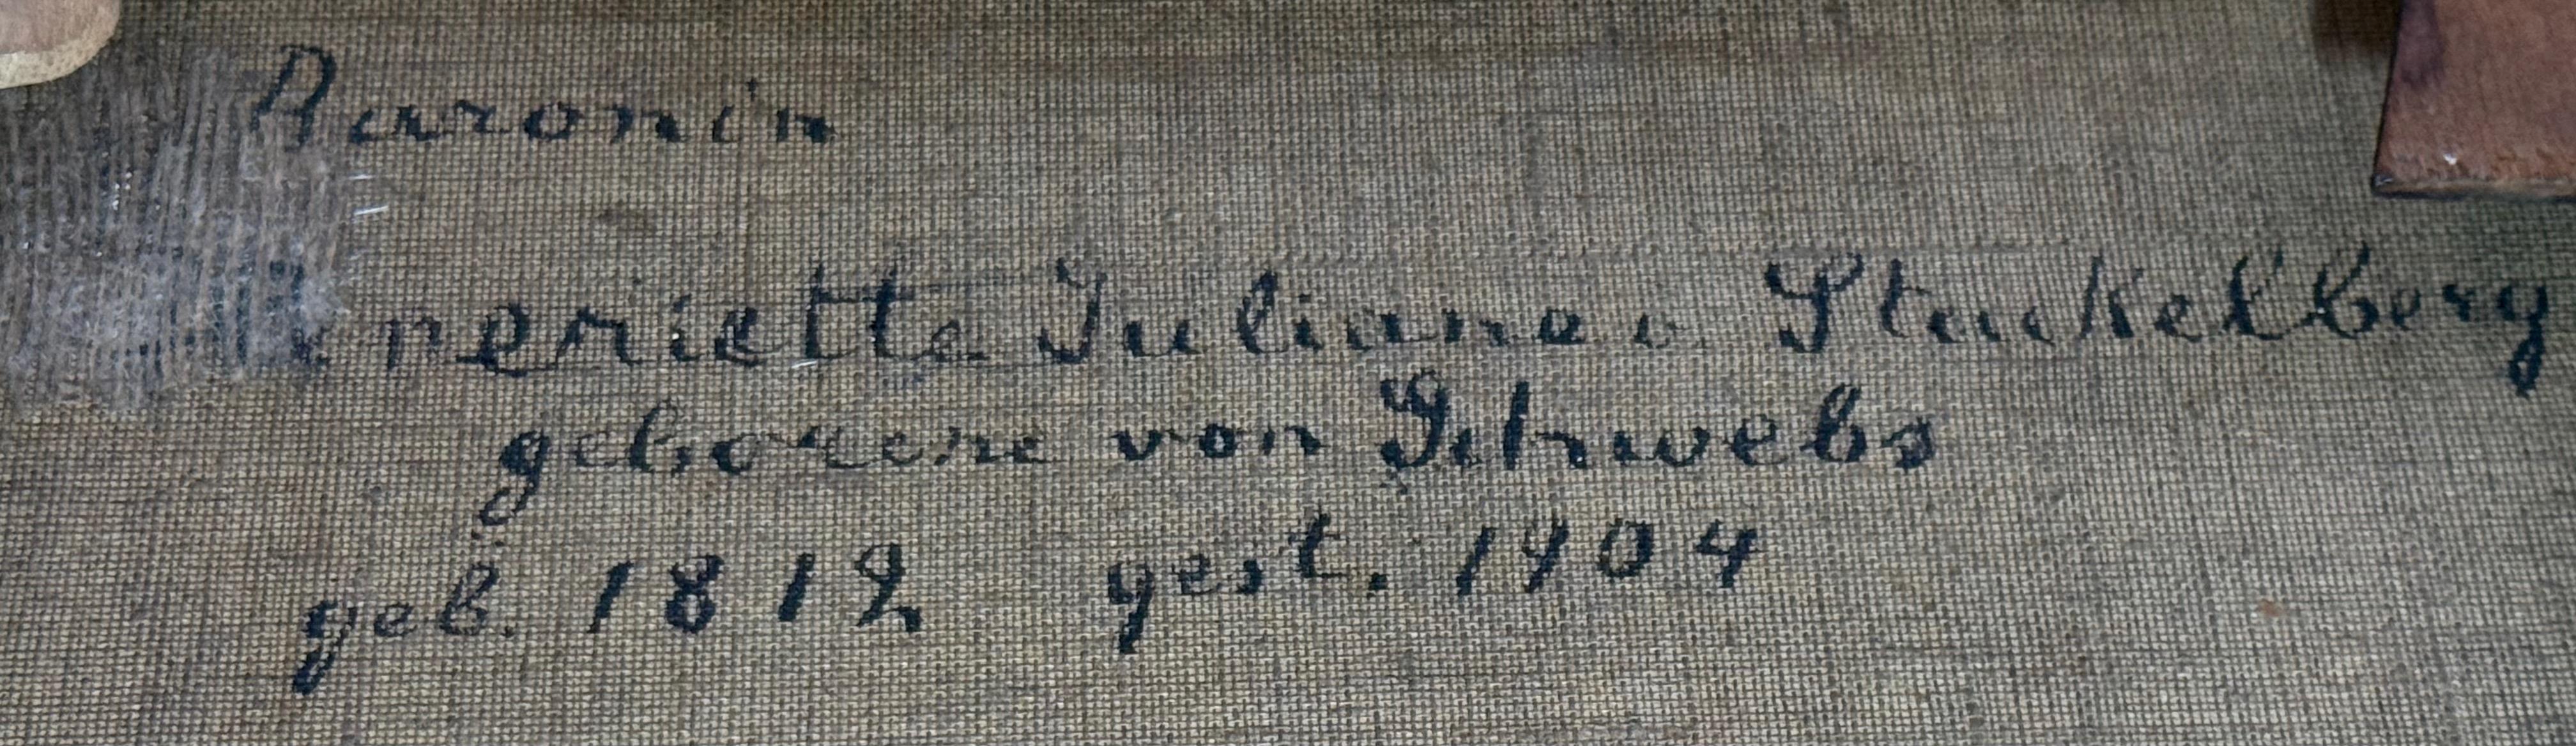 Baronin
Heneriette Juliane v. Stackelberg
geborene von Schwebs
geb. 1812 gest. 1904